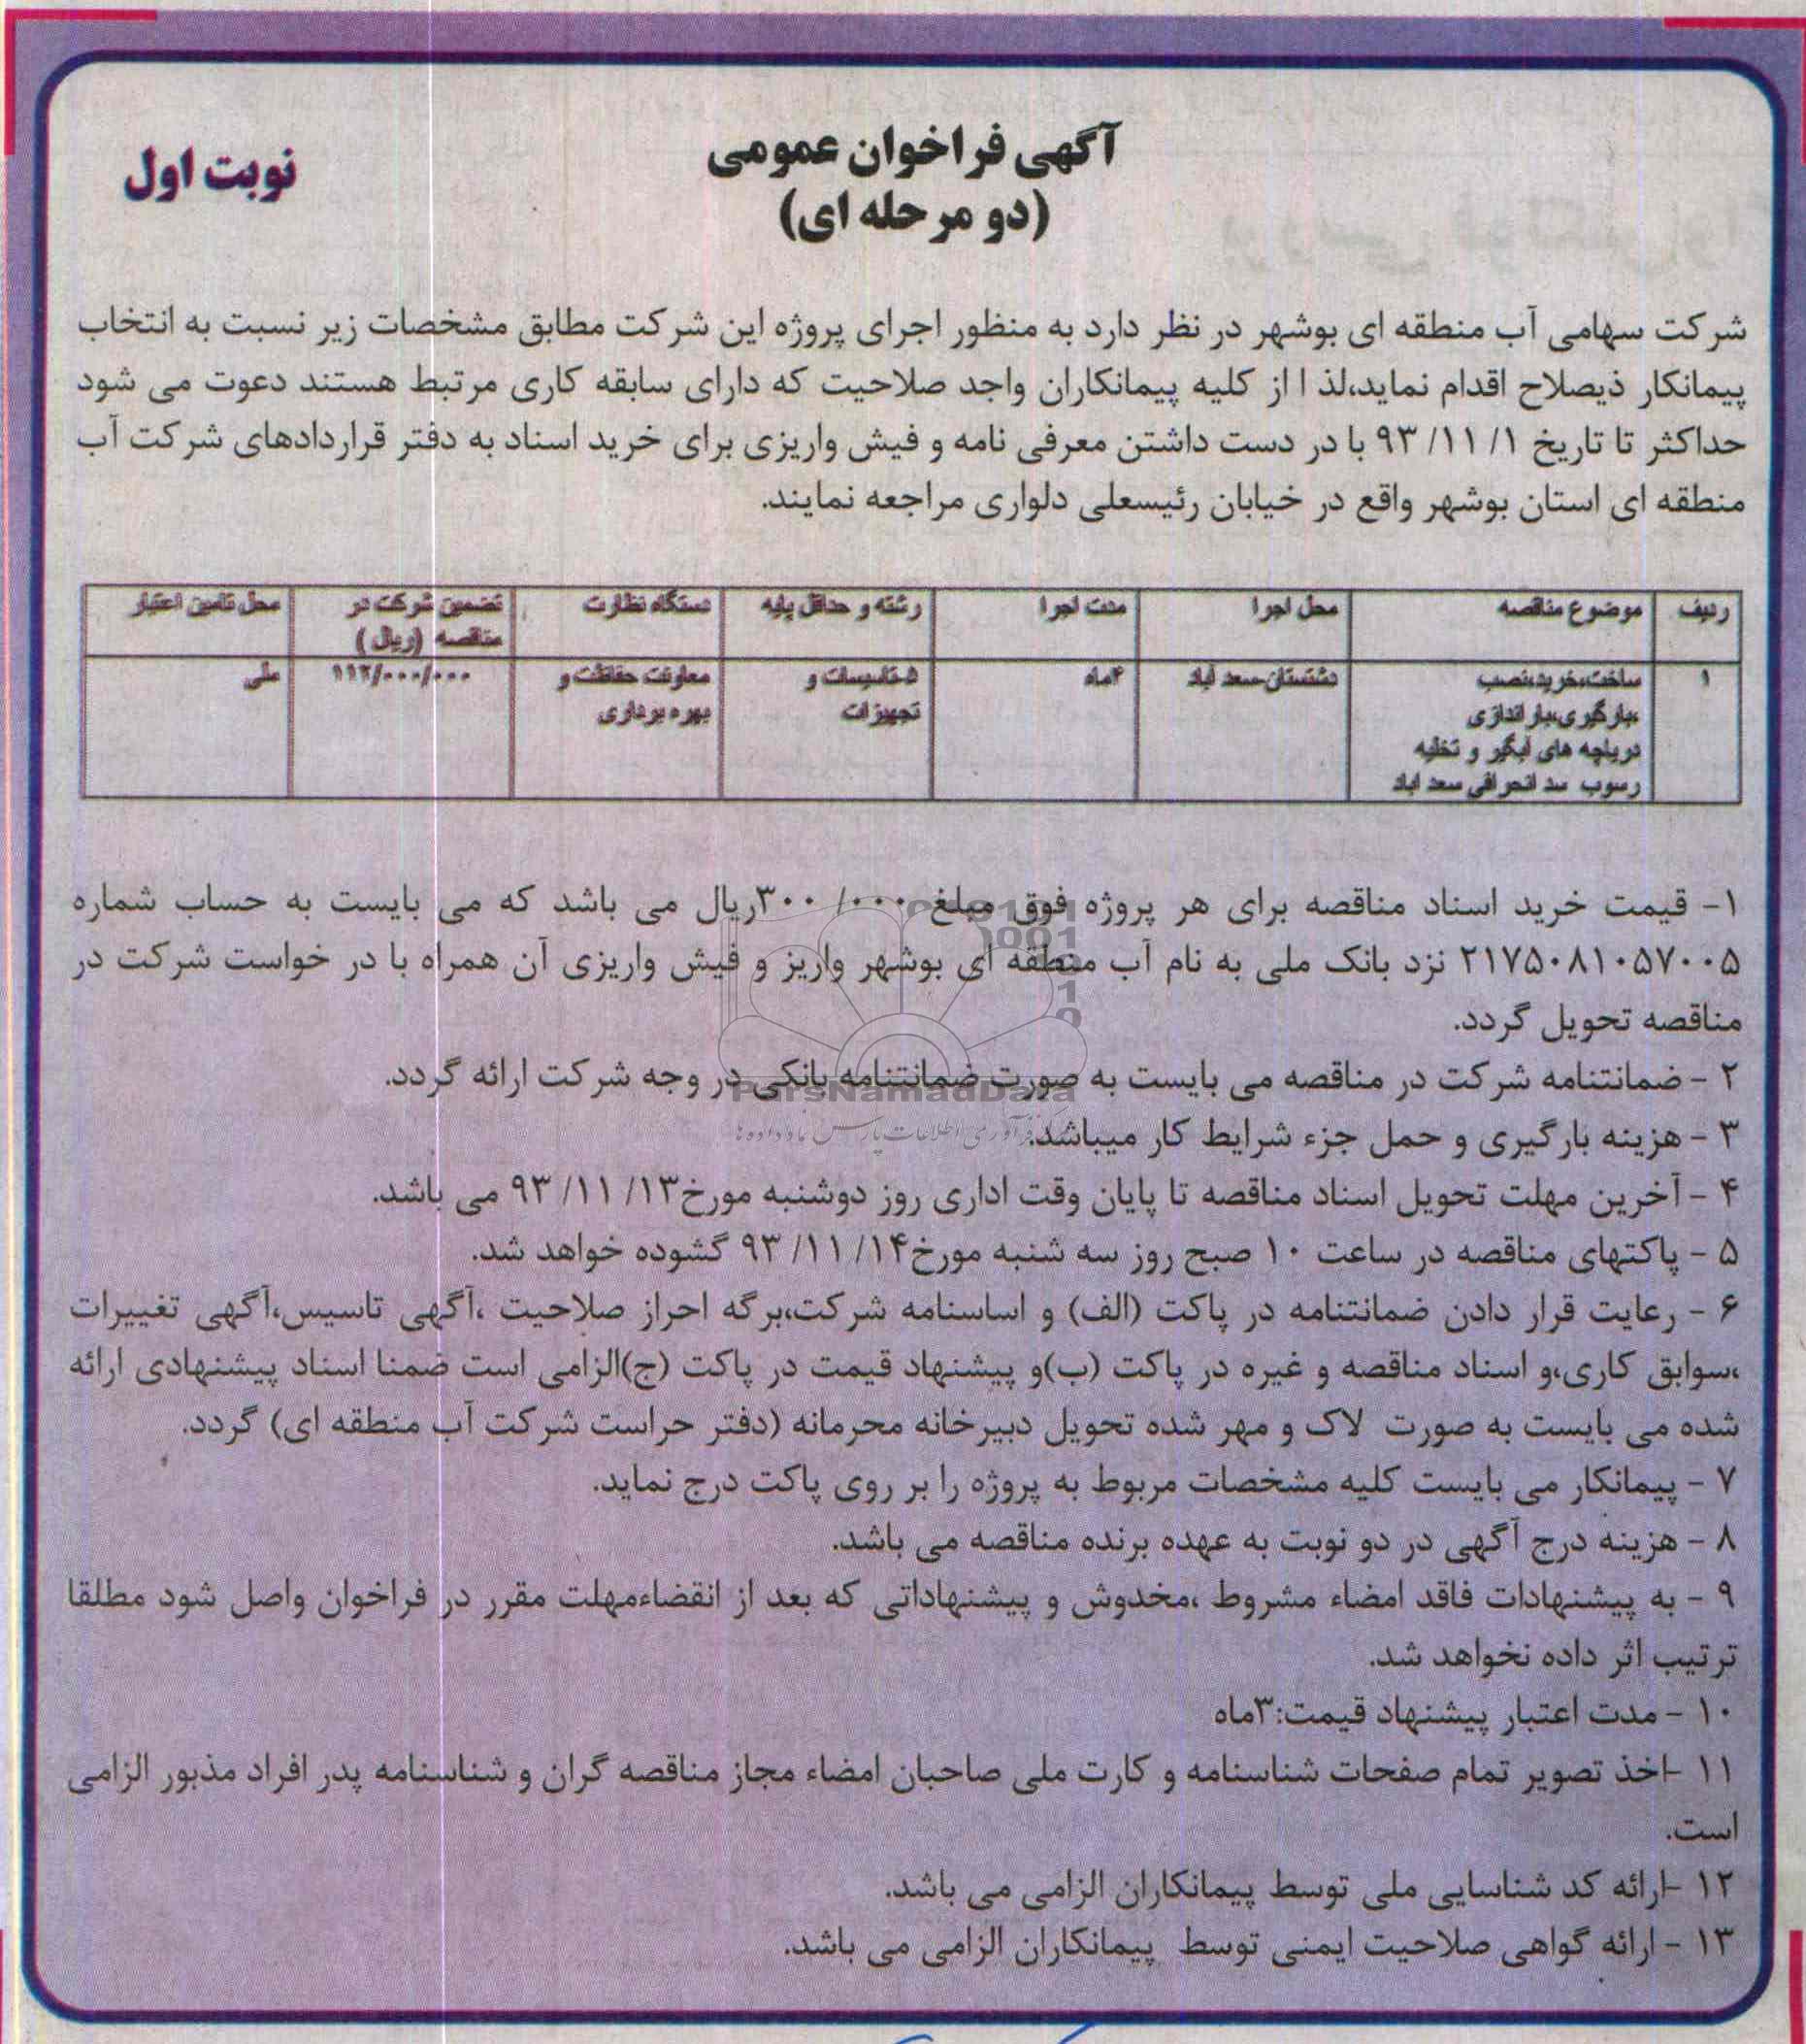 آگهی فراخوان عمومی
(دو مرحله ای)
نوبت اول
شرکت سهامی آب منطقه ای بوشهر در نظر دارد به منظور اجرای پروژه این شرکت مطابق مشخصات زیر نسبت به انتخاب
پیمانکار ذیصلاح اقدام نماید،لذ ا از کلیه پیمانکاران واجد صلاحیت که دارای سابقه کاری مرتبط هستند دعوت می شود
حداکثر تا تاریخ ۱/ ۱۱/ ۹۳ با در دست داشتن معرفی نامه و فیش واریزی برای خرید اسناد به دفتر قراردادهای شرکت آب
منطقه ای استان بوشهر واقع در خیابان رئیسعلی دلواری مراجعه نمایند.
ردیف موضوع مناقصه محل اجرا مدت اجرا رشته و حداقل پایه دستگاه نظارت تضمین شرکت در محل تامین اعتبار
مناقصه (ریال)
۱ ساخت،خرید،نصب دشتستان-سعد آباد ۴ماه ۵-تاسیسات و معاونت حفاظت و ۱۱۲/۰۰۰/۰۰۰ ملی
،بارگیری،بار اندازی تجهیزات بهره برداری
دریاچه های آبگیر و تخلیه
رسوب سد انحرافی سعد اباد
۱- قیمت خرید اسناد مناقصه برای هر پروژه فوق مبلغ ۰۰۰/ ۳۰۰ریال می باشد که می بایست به حساب شماره
۲۱۷۵۰۸۱۰۵۷۰۰۵ نزد بانک ملی به نام آب منطقه ای بوشهر واریز و فیش واریزی آن همراه با در خواست شرکت در
مناقصه تحویل گردد.
۲ - ضمانتنامه شرکت در مناقصه می بایست به صورت ضمانتنامه بانکی در وجه شرکت ارائه گردد.
ParsNamadData
۳ - هزینه بارگیری و حمل جزء شرایط کار میباشد.
۴ - آخرین مهلت تحویل اسناد مناقصه تا پایان وقت اداری روز دوشنبه مورخ۱۳/ ۱۱/ ۹۳ می باشد.
۵ - پاکتهای مناقصه در ساعت ۱۰ صبح روز سه شنبه مورخ۱۴/ ۱۱/ ۹۳ گشوده خواهد شد.
۶ - رعایت قرار دادن ضمانتنامه در پاکت (الف) و اساسنامه شرکت،برگه احراز صلاحیت ،آگهی تاسیس،آگهی تغییرات
،سوابق کاری،و اسناد مناقصه و غیره در پاکت (ب)و پیشنهاد قیمت در پاکت (ج)الزامی است ضمنا اسناد پیشنهادی ارائه
شده می بایست به صورت لاک و مهر شده تحویل دبیرخانه محرمانه (دفتر حراست شرکت آب منطقه ای) گردد.
۷ - پیمانکار می بایست کلیه مشخصات مربوط به پروژه را بر روی پاکت درج نماید.
۸ - هزینه درج آگهی در دو نوبت به عهده برنده مناقصه می باشد.
۹ - به پیشنهادات فاقد امضاء مشروط ،مخدوش و پیشنهاداتی که بعد از انقضاءمهلت مقرر در فراخوان واصل شود مطلقا
ترتیب اثر داده نخواهد شد.
۱۰ - مدت اعتبار پیشنهاد قیمت:۳ماه
۱۱ -اخذ تصویر تمام صفحات شناسنامه و کارت ملی صاحبان امضاء مجاز مناقصه گران و شناسنامه پدر افراد مذبور الزامی
است.
۱۲ -ارائه کد شناسایی ملی توسط پیمانکاران الزامی می باشد.
۱۳ - ارائه گواهی صلاحیت ایمنی توسط پیمانکاران الزامی می باشد.